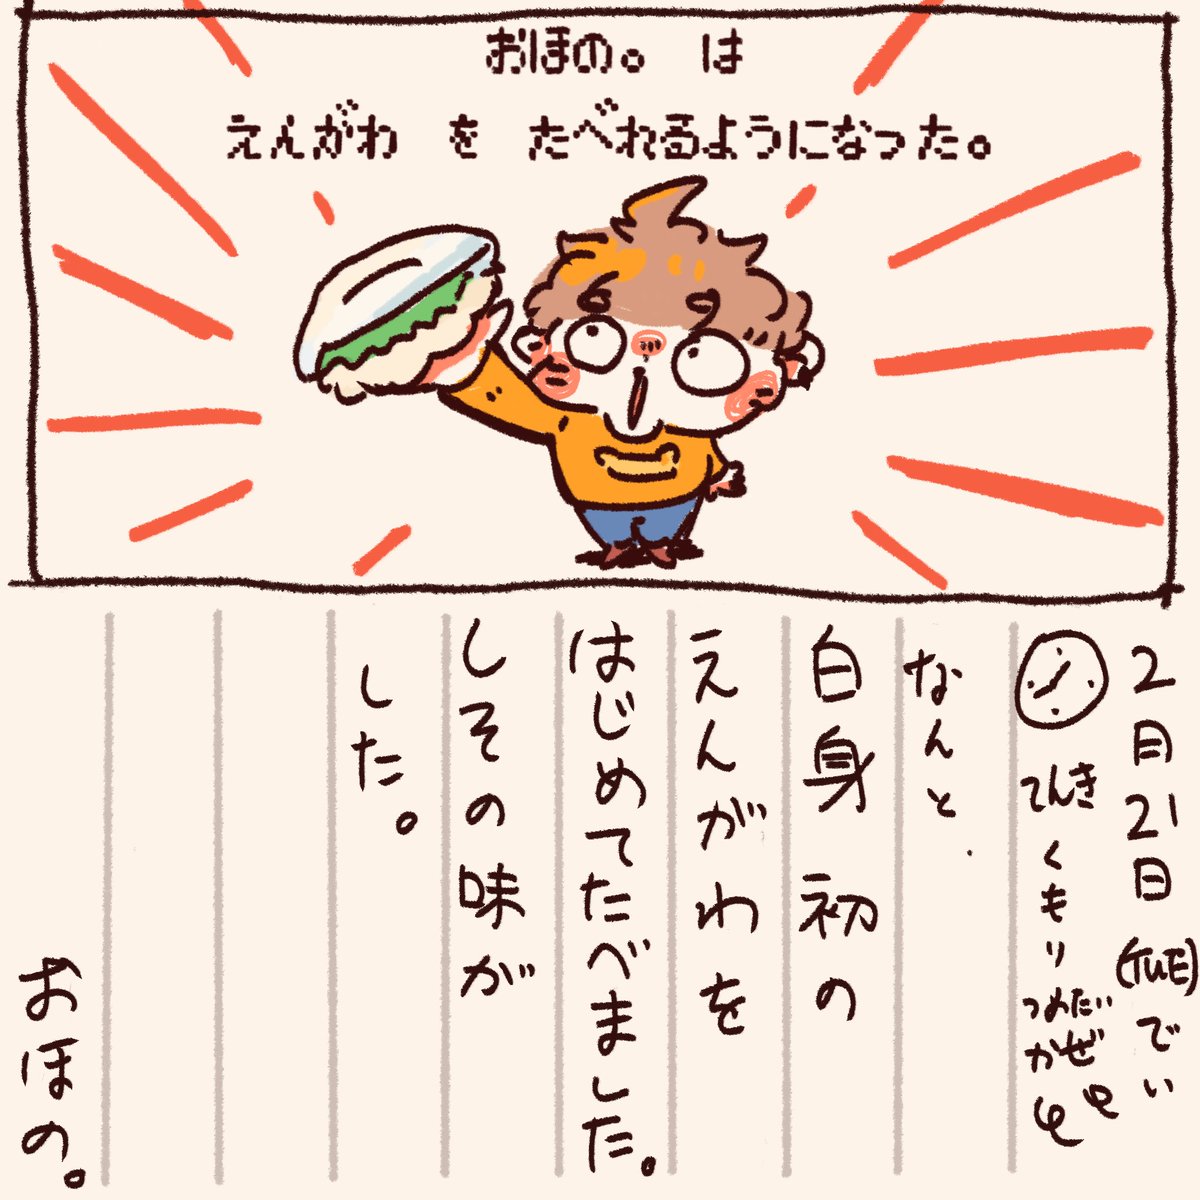 おほの。 は
えんがわ を たべれるようになった。
2月21日(TUE)でい
てんき くもり つめたい かぜ
なんと
白身 初の
えんがわを
はじめてたべました。
しその味が
した。
おほの。